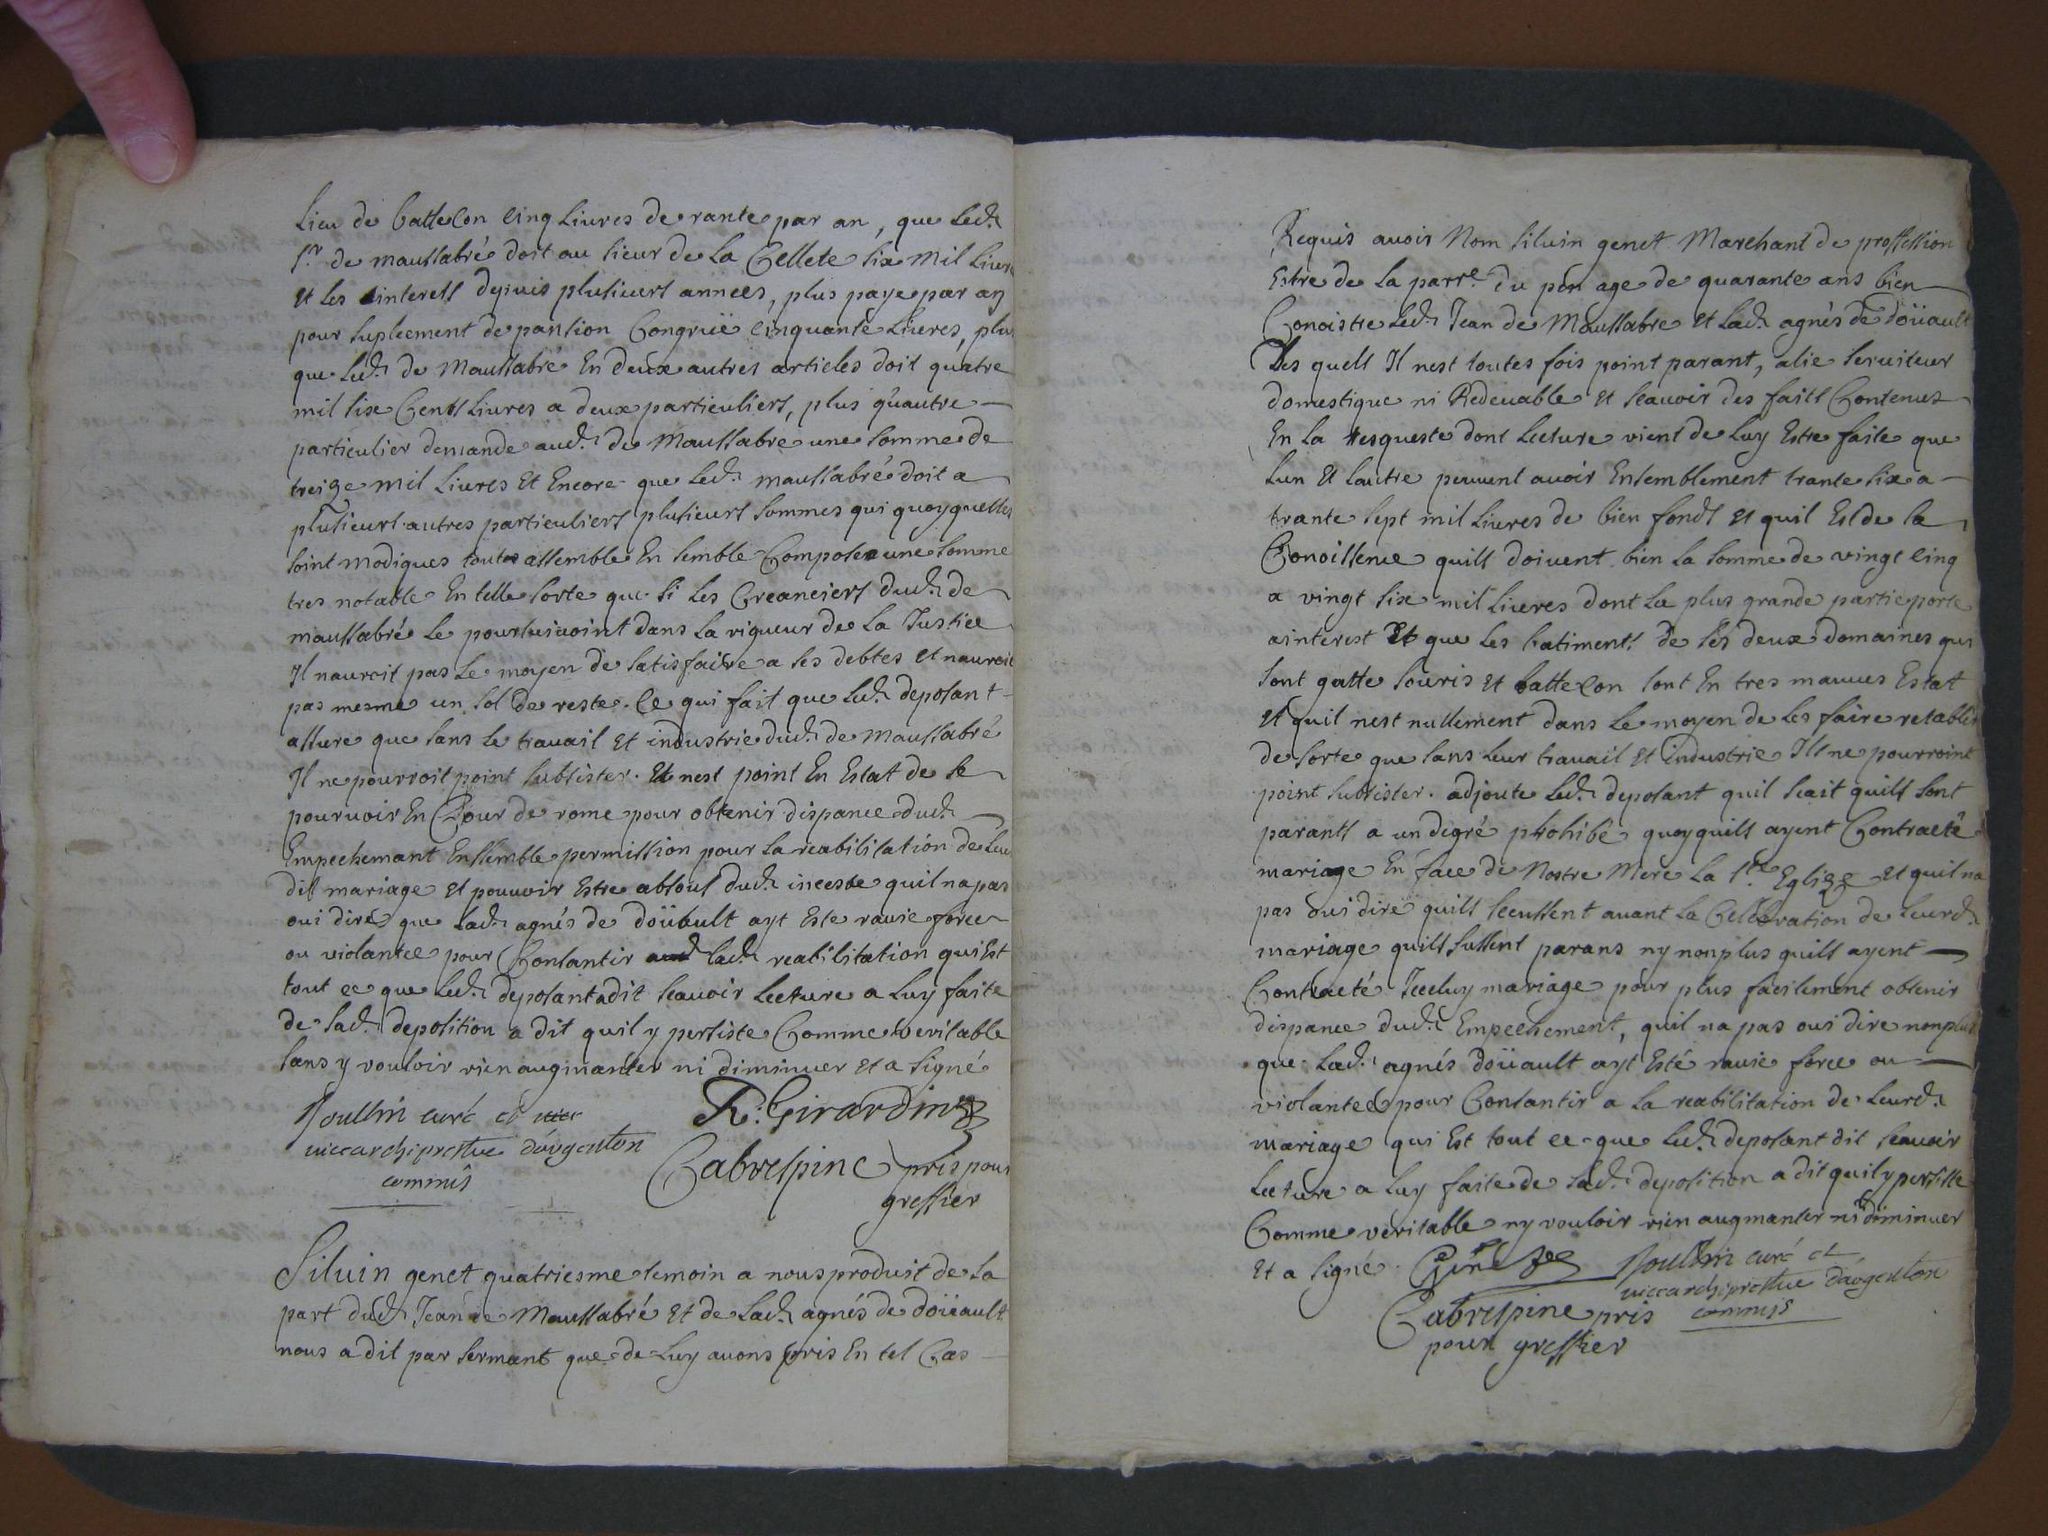 lieu de battelon cinq livres de rante par an, que led.
sr. de maussabré doit au sieur de la Cellete six mil livres
et les interests depuis plusieurs années, plus paye par an
pour supleement de pansion Congruë cinquante livres, plus
que led. de Maussabré En deux autres articles doit quatre
mil six Cents livres a deux particuliers, plus q'uautre
particulier demande aud. de Maussabré une somme de
treize mil livres et Encore que led. maussabré doit a
plusieurs autres particuliers plusieurs sommes qui quoyquelles
soint modiques toutes assemble En semble Compose une somme
tres notable En telle sorte que si les Creanciers dud. de
maussabré le poursuivoint dans la rigueur de la Justice
Il nauroit pas le moyen de satisfaire a ses debtes et nauroit
pas mesme un sol de reste. Ce qui fait que led. deposant
assure que sans le travail et industrie dud. de Maussabré
Il ne pourroit point subsister. Et nest point En Estat de se
pourvoir En Cour de rome pour obtenir dispance dud.
Empechemant Ensemble permission pour la reabilitation de leur
dit mariage et pouvoir Estre absout dud. inceste quil na pas
oui dire que lad. agnés de doüault ayt Este ravie force
ou violantee pour Consantir a lad. reabilitation qui Est
tout ce que led. deposant adit scauoir lecture a luy faite
de sad. deposition a dit quil y persiste Comme veritable
sans y vouloir rien augmanter ni diminuer et a signé
R. Girardin
curé et
vicearchiprestre d'argenton
commis
Cabrespine pris pour
greffier
Siluin genet quatriesme temoin a nous produit de la
part dud. Jean de Maussabré et de lad. agnés de doüault
nous a dit par sermant que de luy auons pris En tel Cas
Requis auoir Nom siluin genet Marchant de proffession
Estre de la parre. du pén age de quarante ans bien
Conoistre led. Jean de Maussabre et lad. agnés de doüault
Des quels Il nest toutes fois point parant, alie seruiteur
domestique ni Redeuable et scauoir des faits Contenus
En la resqueste dont lecture vient de luy Estre faite que
lun et lautre peuuent auoir Ensemblement trante six a
trante sept mil liures de bien fonds et quil Est de sa
Conoissence quils doiuent bien la somme de vingt cinq
a vingt six mil liures dont la plus grande partie porte
ainterest et que les batiments de ses deux domaines qui
sont gatte souris et battelon sont En tres mauues Estat
et quil nest nullement dans le moyen de les faire retablir
de sorte que sans leur trauail et industrie Ils ne pourroint
point subsister. adjoute led. deposant quil scait quils sont
parants a un degré prohibé quoyquils ayent Contracté
mariage En face de Nostre Mere la ste. Eglize et quil na
pas oui dire quils sceussent auant la Celebration de leurd.
mariage quils fussent parans ny nonplus quils ayent
Contracté Iceluy mariage pour plus facilement obtenir
dispance dud. Empechement, quil na pas oui dire nonplus
que lad. agnés doüault ayt Esté ravie force ou
violantee pour Consantir a la reabilitation de leurd.
mariage qui Est tout ce que led. deposant dit scauoir
lecture a luy faite de sad. deposition a dit quil y persiste
Comme veritable ny vouloir rien augmanter ni diminuer
et a signé
curé et
vicearchiprestre d'argenton
commis
Cabrespine pris
pour greffier